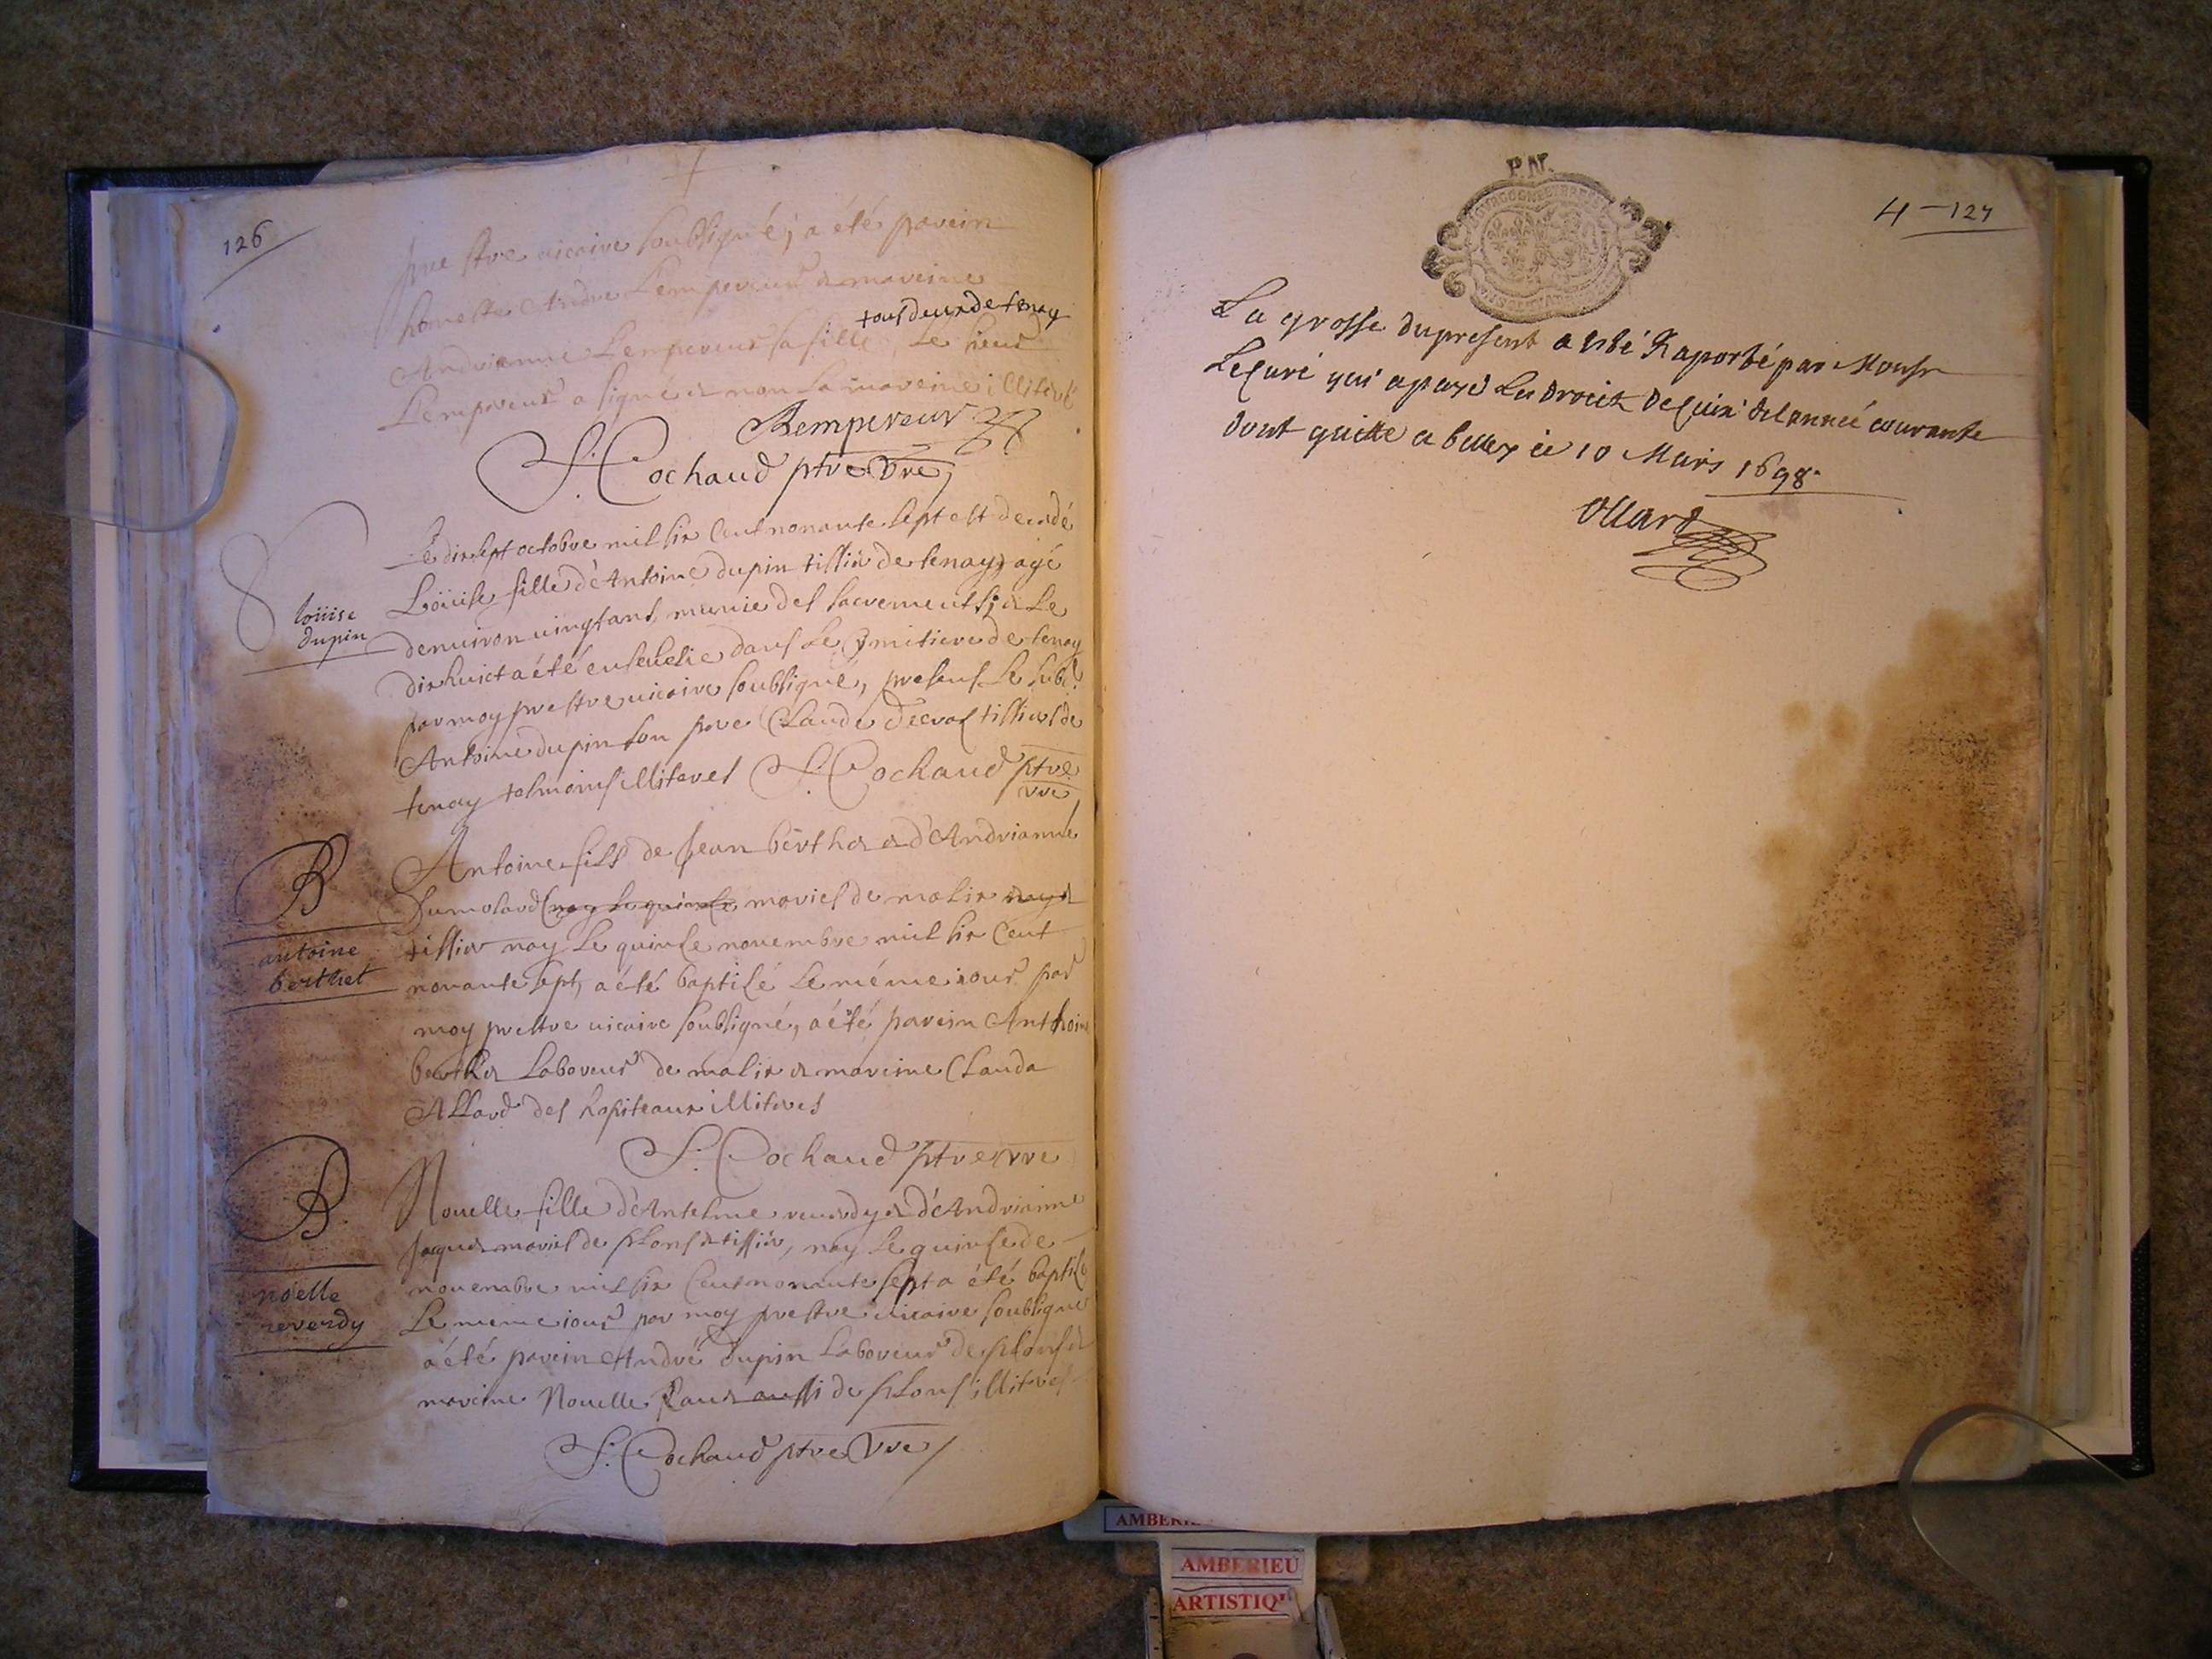 126
prestre vicaire soubsigné, a été parein
honeste André Lempereur & mareine
tous deux de tenay
Andrianne Lempereur sa fille Le sieur
Lempereur a signé & non la mareine illiteré
Lempereur
S. Cochaud ptre Vre
Le dixsept octobre mil six Cent nonante sept est decedé
Loüise fille d'Antoine dupin tissiér de tenay, agé
loüise
dupin
denuiron uingt ans, munie des sacrements, & Le
dixhuict a été enseuelie dans Le Cymitiere de tenay
par moy prestre uicaire soubsigné, presens Le subd.
Antoine dupin son pere Claude Decrot tissiers de
tenay tesmoins illiterés S. Cochaud ptre
vre
B
antoine
berthet
Antoine fils de Jean berthet & d'Andrianne
Humolard nay le quinse mariés de malix nay &
tissier nay Le quinse nouembre mil six Cent
nonante sept, a été baptisé Le méme iour par
moy prestre uicaire soubsigné, a été parein Anthoine
berthet Laboureur de malix & mareine Clauda
Allard des hopiteaux illiterés
S. Cochaud ptre vre
B
noelle
reverdy
Nouelle fille d'Antelme reuerdy & d'Andrianne
Jaquet mariés de plons & tissiér, nay Le quinse de
nouembre mil six Cent nonante sept a été baptisé
Le meme iour par moy prestre uicaire soubsigné
a été parein André dupin Laboureur de plons &
mareine Nouelle aussi de plons illiterés
S. Cochaud ptre Vre
P.N.
4 — 127
La grosse du present a esté Raporté par Monsr
Le Curé qui a payé Les droits de l'année courante
dont quitte a belley ce 10 Mars 1698.
Ollard
AMBERIEU
ARTISTIQU